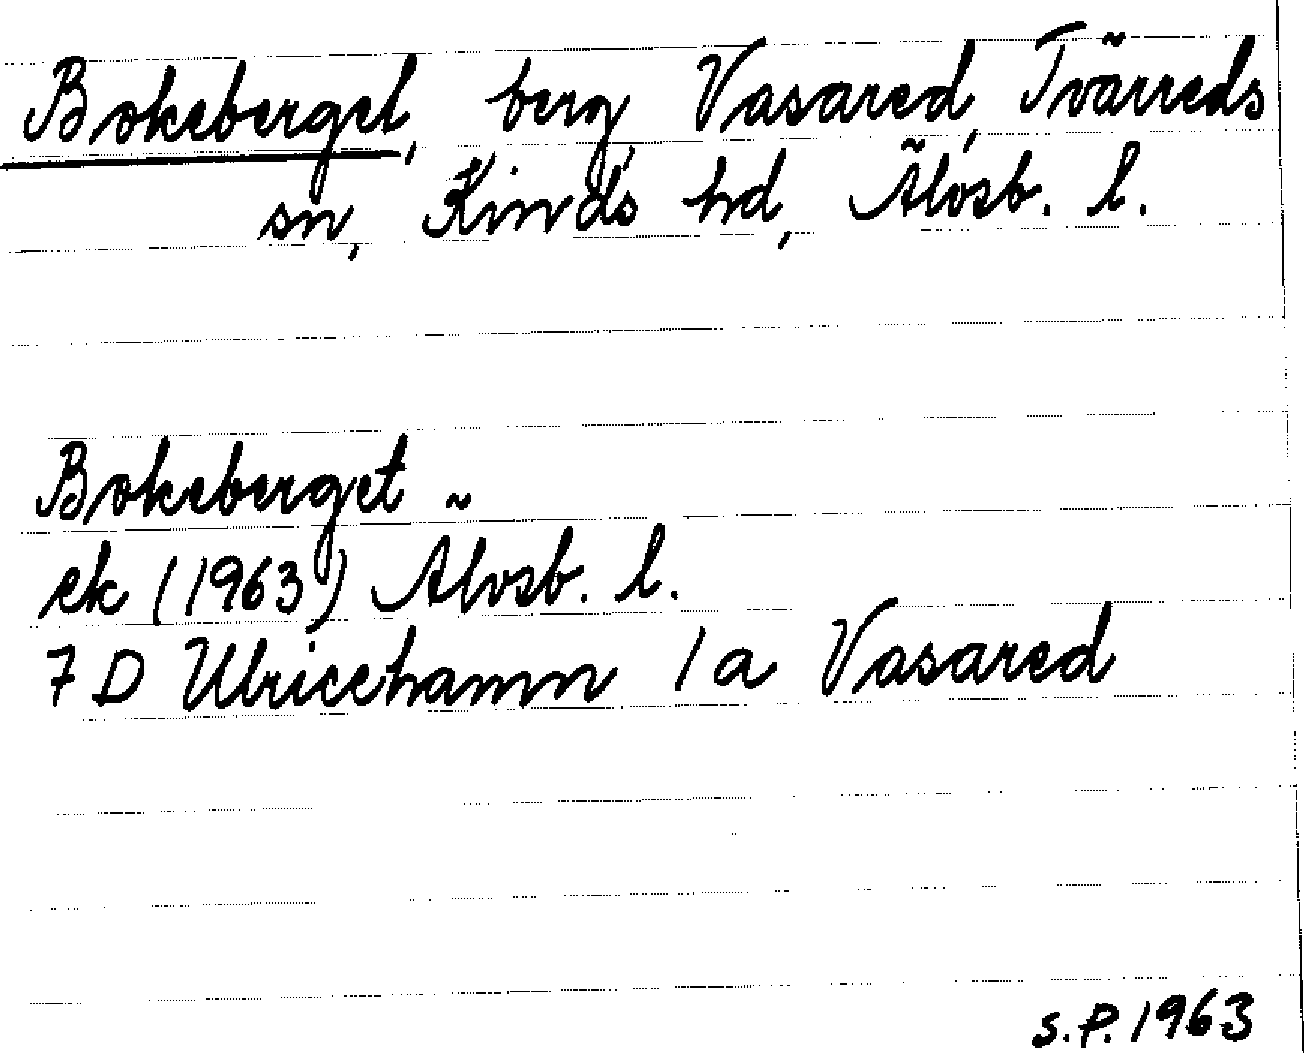 Bokeberget, berg, Vasared, Tvärreds
sn, Kinds hd, Älvsb. l.
Bokeberget
ek (1963) Älvsb. l.
7 D Ulricehamn 1 a Vasared
S.P. 1963